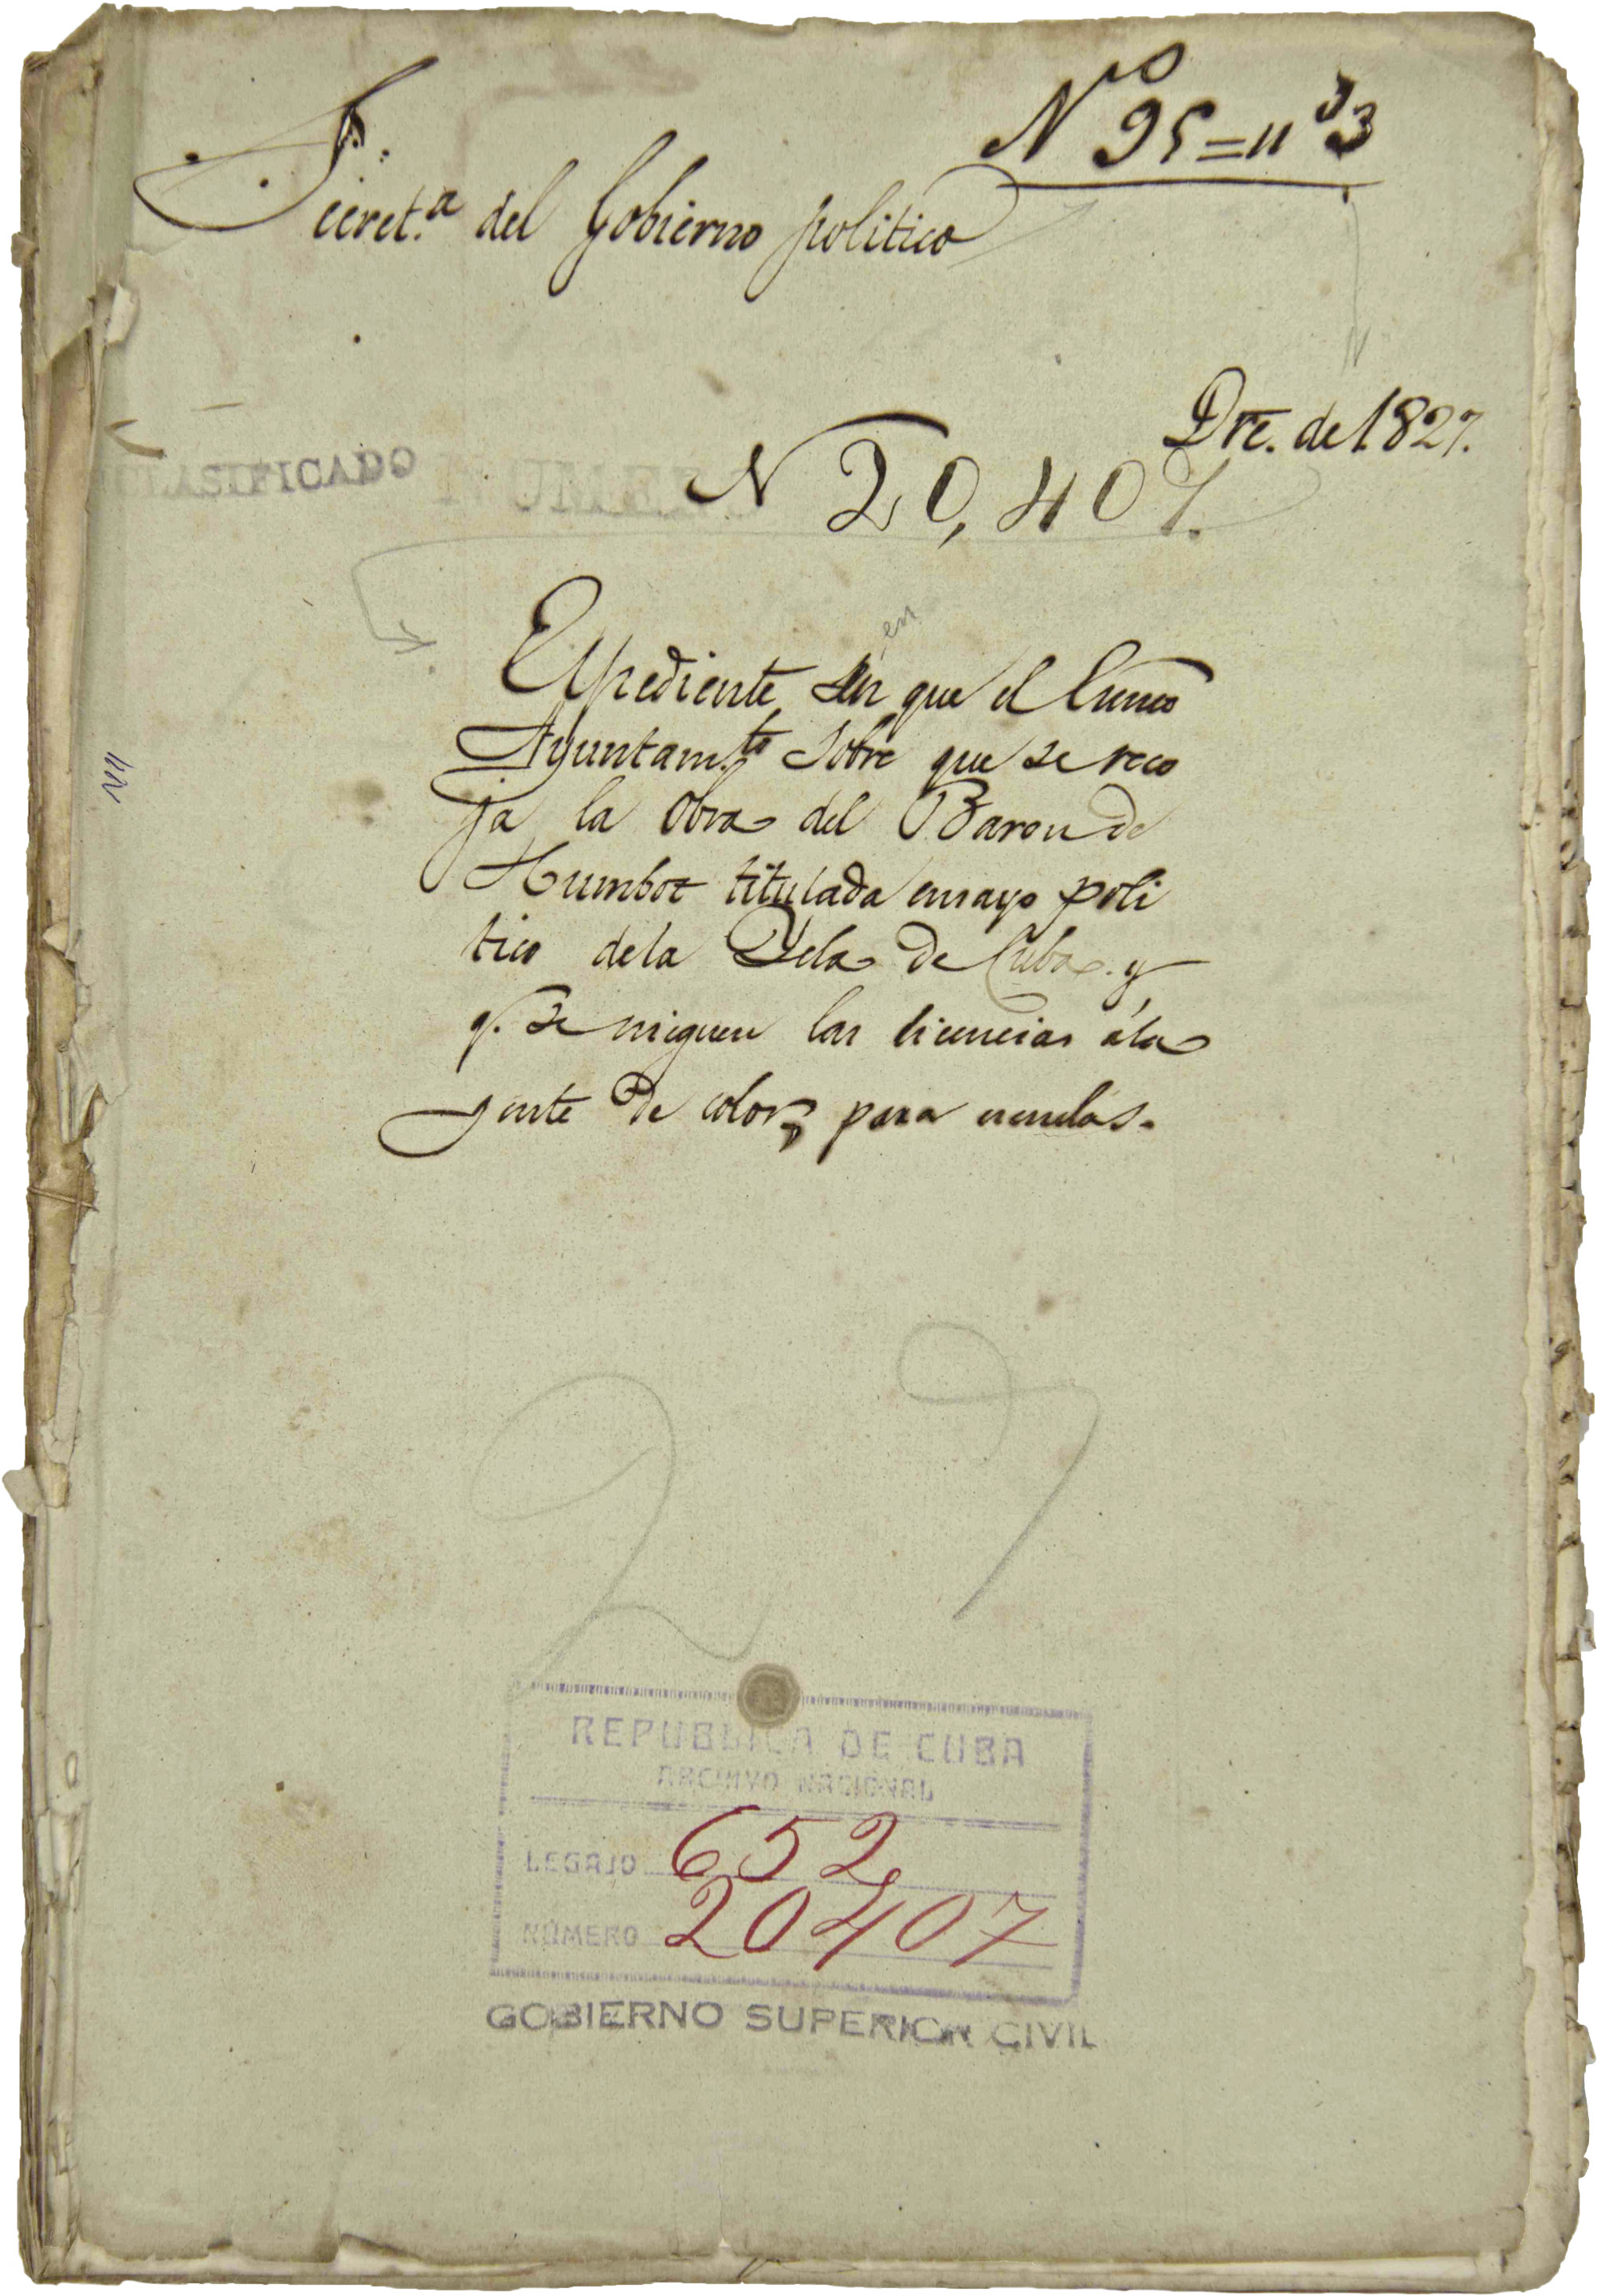 Nº 95=nº3
Secret.ª del Gobierno politico
Dre. de 1827.
CLASIFICADO
N 20,407.
en
Expediente en que el Exmo
Ayuntam.to sobre que se reco
ja la obra del Baron de
Humbot titulada ensayo poli
tico dela Ysla de Cuba. y
q. se nieguen las licencias ála
gente de color, para escuelas.
27
REPUBLICA DE CUBA
ARCHIVO NACIONAL
LEGAJO 652
NÚMERO 20407
GOBIERNO SUPERIOR CIVIL